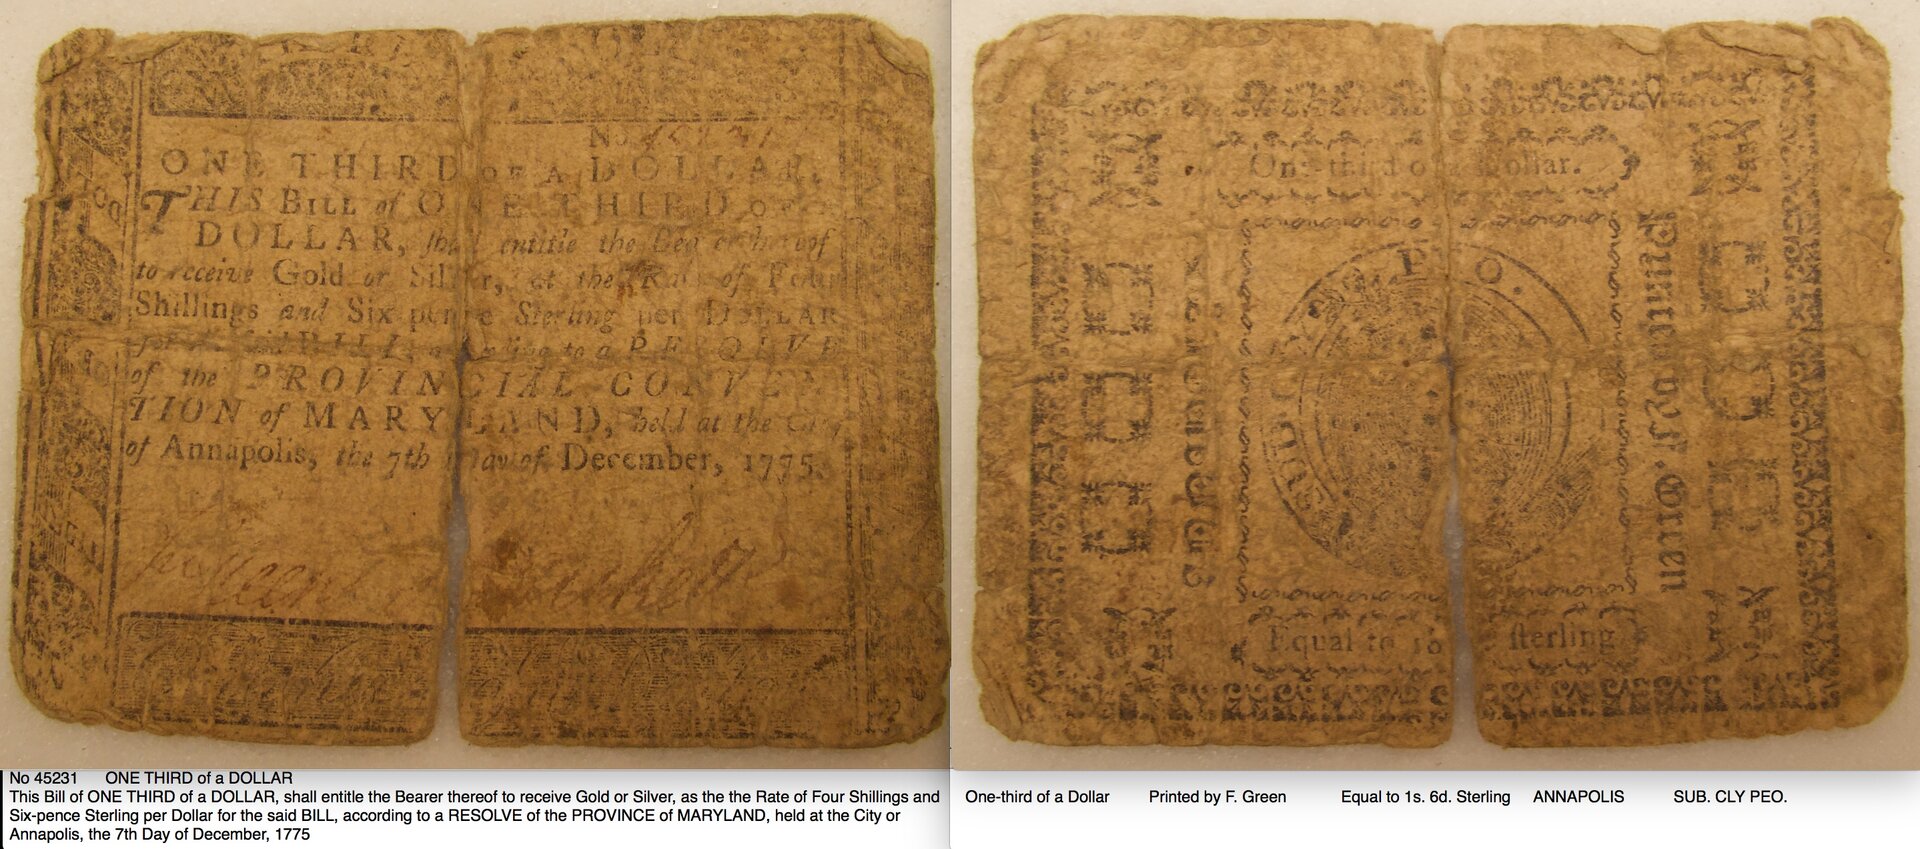 No
ONE THIRD OF A DOLLAR.
THIS BILL of ONE THIRD OF
DOLLAR, shall entitle the Bearer hereof
to receive Gold or Silver, at the Rate of Four
Shillings and Six pence Sterling per DOLLAR
BILL, according to a RESOLVE
of the PROVINCIAL CONVEN-
TION of MARYLAND, held at the City
of Annapolis, the 7th Day of December, 1775.
One-third of a Dollar.
PEO.
Printed by F. Green
Equal to 1s sterling
No 45231 ONE THIRD of a DOLLAR
This Bill of ONE THIRD of a DOLLAR, shall entitle the Bearer thereof to receive Gold or Silver, as the the Rate of Four Shillings and
Six-pence Sterling per Dollar for the said BILL, according to a RESOLVE of the PROVINCE of MARYLAND, held at the City or
Annapolis, the 7th Day of December, 1775
One-third of a Dollar Printed by F. Green Equal to 1s. 6d. Sterling ANNAPOLIS SUB. CLY PEO.